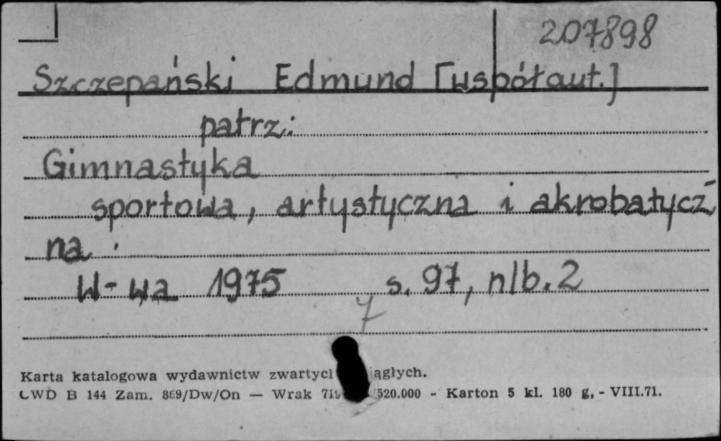 207898
Szczepański Edmund [współaut.]
patrz:
Gimnastyka
sportowa, artystyczna i akrobatycz-
na.
W-wa 1975 s. 97, nlb. 2
7
Karta katalogowa wydawnictw
CWD B 144 Zam. 869/Dw/On — Wrak 520.000 - Karton 5 kl. 180 g, - VIII.71.